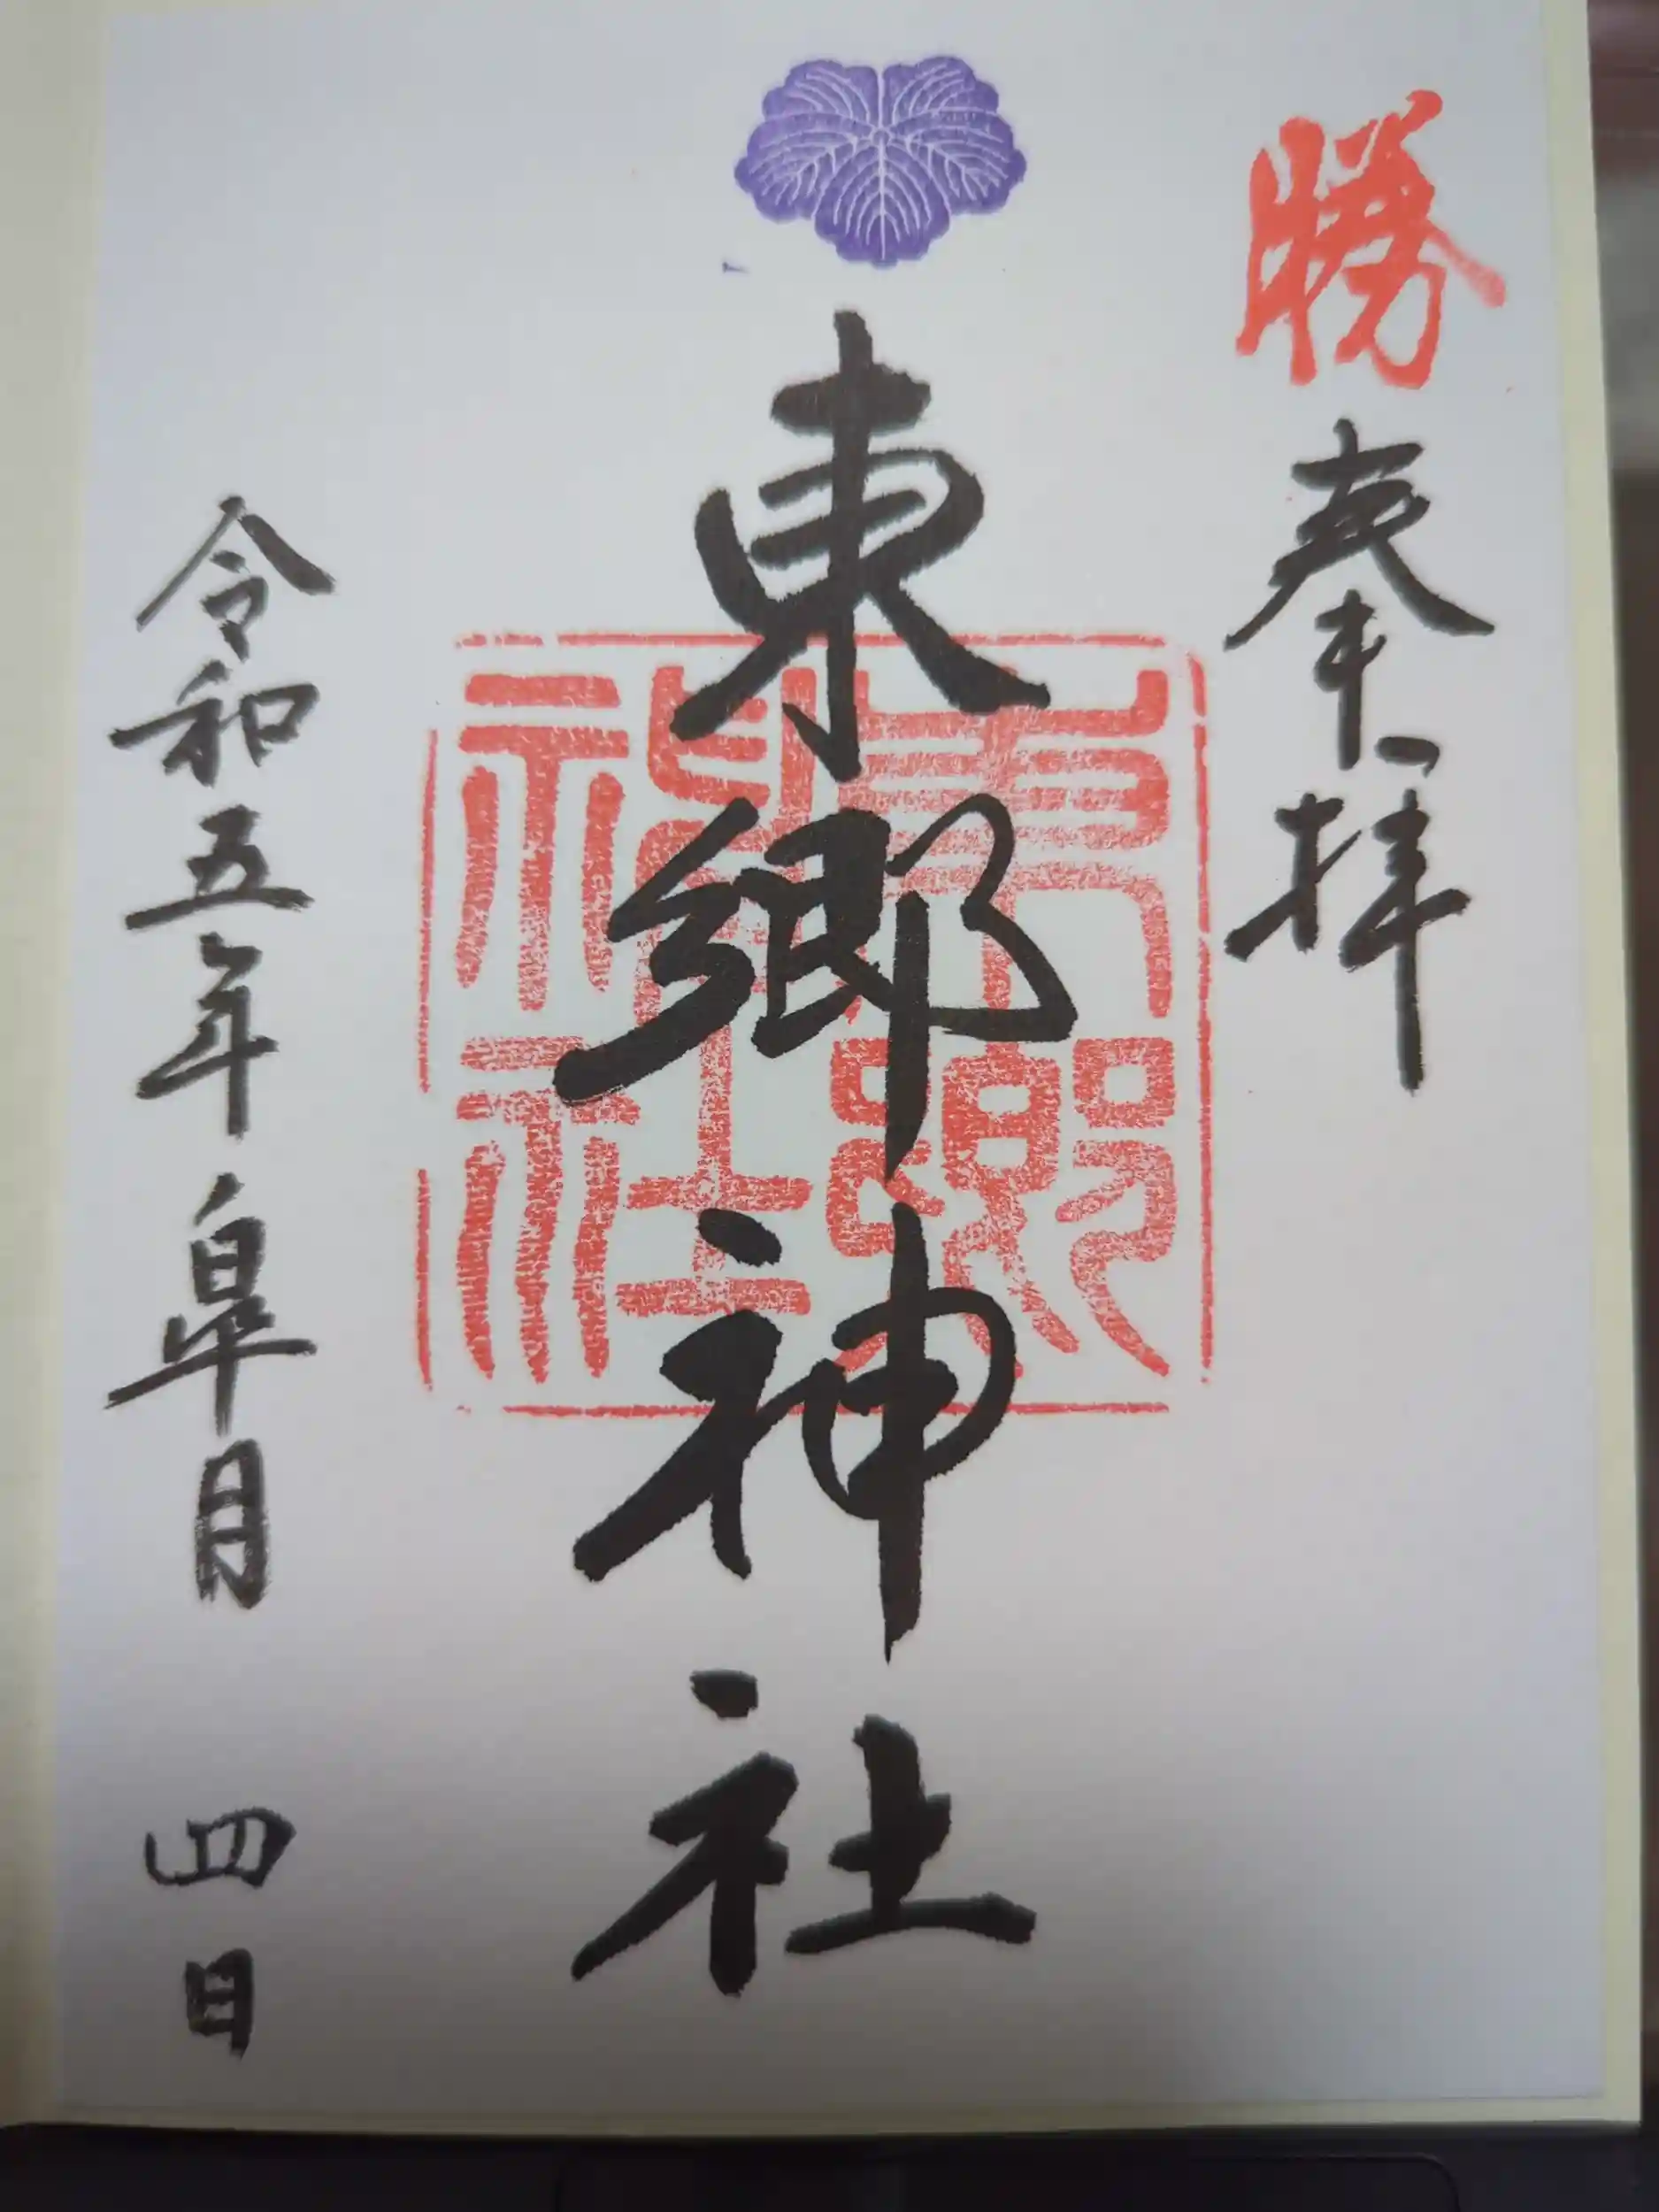 勝
奉拝
東郷神社
東郷神社
令和五年皐月四日